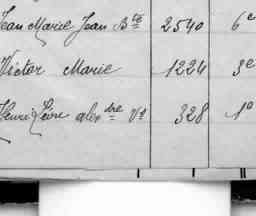 Jean Marie Jean Bte 2540 6e
Victor Marie 1224 3e
Henri alexdre Vt 328 1e